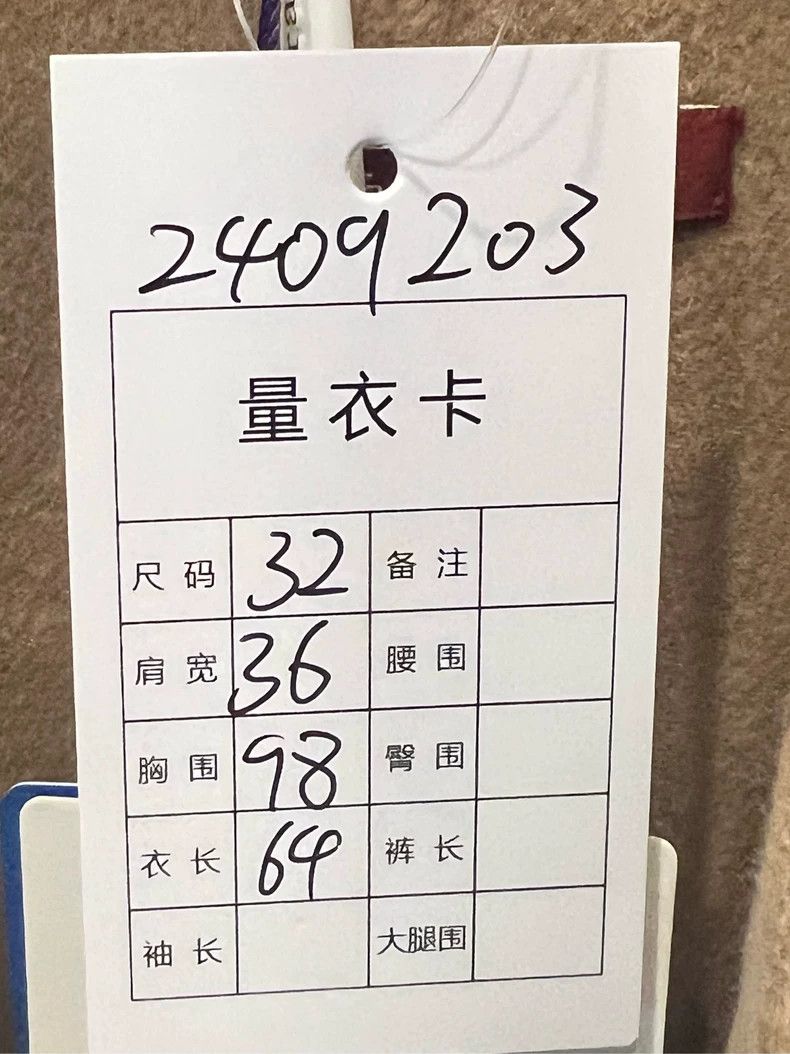 2409203
量衣卡
尺码 32 备注
肩宽 36 腰围
胸围 98 臀围
衣长 64 裤长
袖长 大腿围